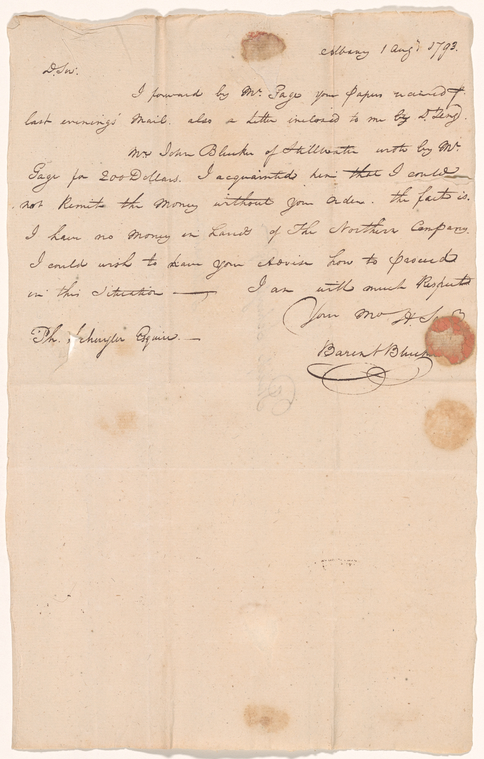 Albany 1 Augt 1793.
D. Sir.
I forward by Mr. Gage your Papers received
last evenings Mail. also a Letter inclosed to me by
Mr John Bleeker of Stillwater wrote by Mr.
Gage for 200 Dollars. I acquainted him that I could
not Remitt the Money without your order. the fact is.
I have no money in hands of The Northern Company.
I could wish to have your Advise how to proceed
in this Situation — I am with much Respect
Your Mo H. Ser
Ph. Schuyler Esquire. —
Barent Bleeker